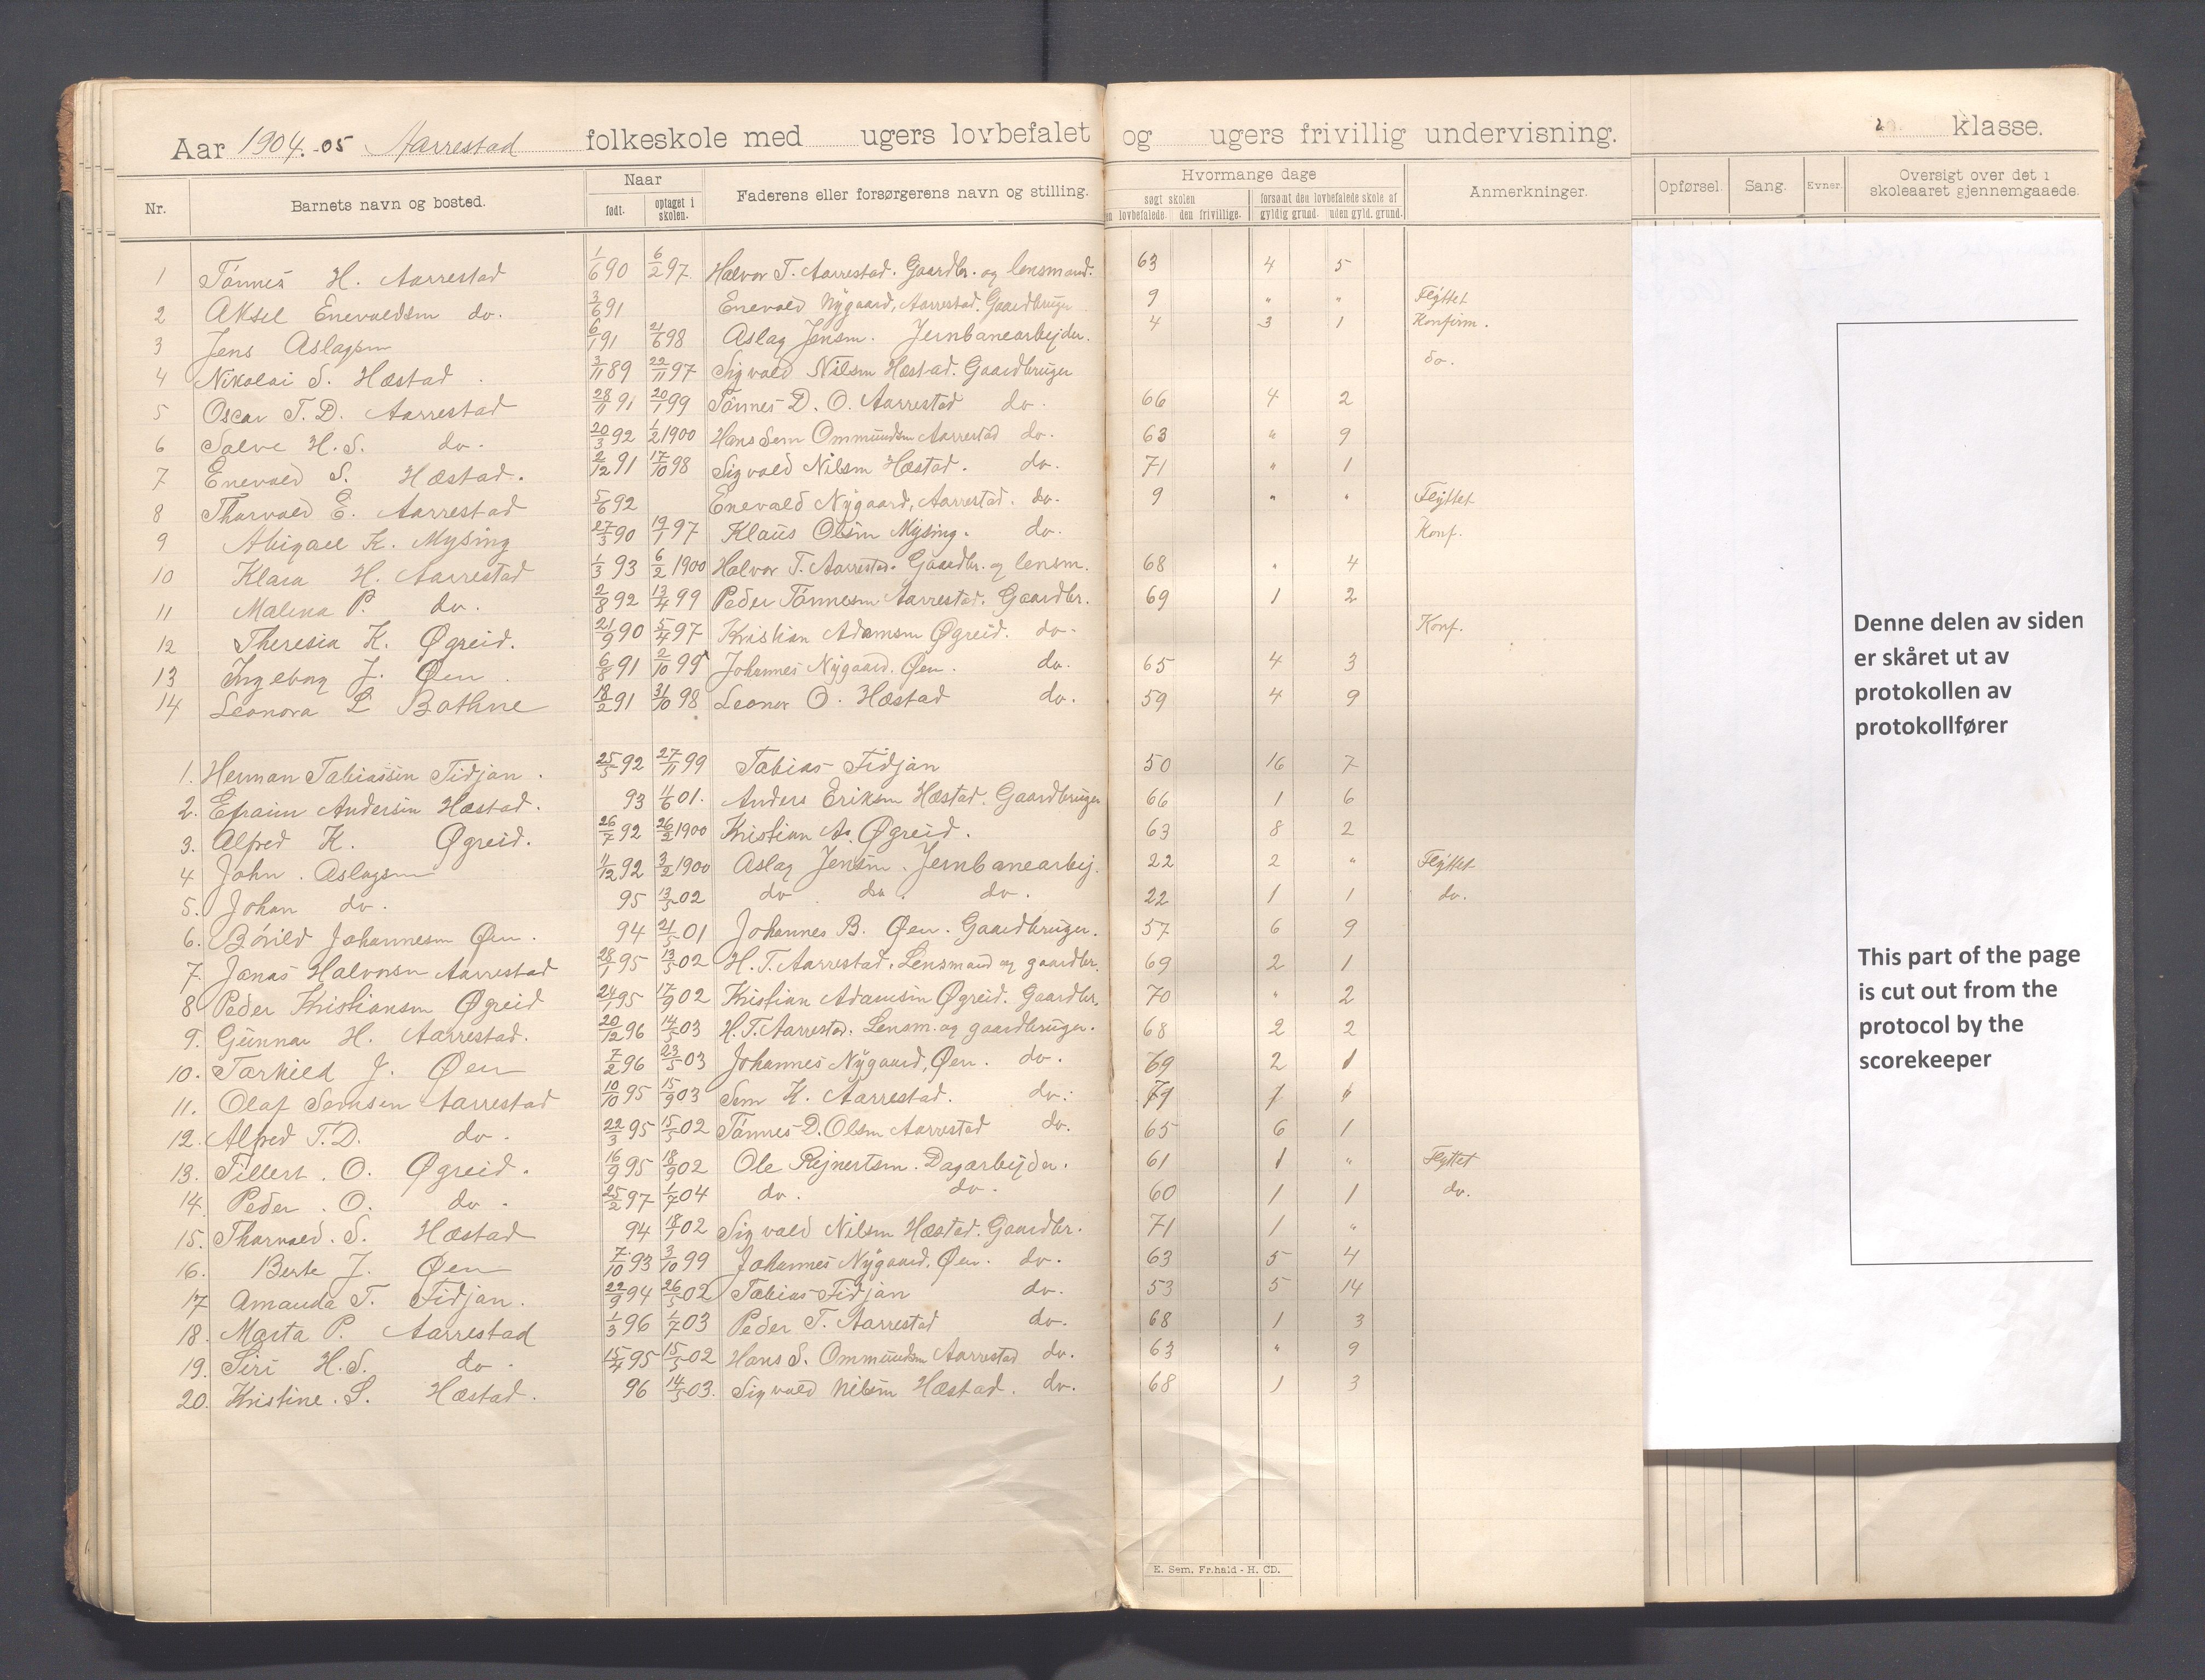 Aar 1904.-05 Aarrestad folkeskole med ugers lovbefalet og ugers frivillig undervisning. klasse.
Nr. Barnets navn og bosted. Naar født. optaget i skolen. Faderens eller forsørgerens navn og stilling. Hvormange dage søgt skolen den lovbefalede. den frivillige. forsømt den lovbefalede skole af gyldig grund. uden gyld. grund. Anmerkninger. Opførsel. Sang. Evner. Oversigt over det i skoleaaret gjennemgaaede.
1 Tønnes H. Aarrestad 1/6 90 6/2 97. Halvor T. Aarrestad. Gaardbr. og lensmand. 63 4 5
2 Aksel Enevaldsen do. 3/6 91 Enevald Nygaard, Aarrestad. Gaardbruger 9 " " Flyttet
3 Jens Aslagsen 6/1 91 21/6 98 Aslag Jensen. Jernbanearbejder. 4 3 1 Konfirm.
4 Nikolai S. Hæstad 3/11 89 22/11 97 Sigvald Nilsen Hæstad. Gaardbruger do.
5 Oscar T. D. Aarrestad 28/11 91 20/1 99 Tønnes D. O. Aarrestad do. 66 4 2
6 Salve H. S. do. 20/3 92 1/2 1900 Hans Sem Ommundsen Aarrestad do. 63 " 9
7 Enevald S. Hæstad. 2/12 91 17/10 98 Sigvald Nilsen Hæstad. do. 71 " 1
8 Thorvald E. Aarrestad 5/6 92 Enevald Nygaard, Aarrestad. do. 9 " " Flyttet
9 Abigael K. Mysing 27/3 90 19/1 97 Klaus Olsen Mysing. do. Konf.
10 Klara H. Aarrestad 1/3 93 6/2 1900 Halvor T. Aarrestad. Gaardbr. og lensm. 68 " 4
11 Malena P. do. 2/8 92 13/4 99 Peder Tønnesen Aarrestad. Gaardbr. 69 1 2
12 Theresia K. Øgreid. 21/9 90 5/4 97 Kristian Adamsen Øgreid. do. Konf.
13 Ingeborg J. Øen. 6/8 91 2/10 99 Johannes Nygaard. Øen. do. 65 4 3
14 Leonora L Bathne 18/2 91 31/10 98 Leonor O. Hæstad do. 59 4 9
1. Herman Tobiassen Fidjan. 25/5 92 27/11 99 Tobias Fidjan 50 16 7
2. Efraim Andersen Hæstad. 93 11/6 01. Anders Eriksen Hæstad. Gaardbruger 66 1 6
3. Alfred K. Øgreid. 26/7 92 26/2 1900 Kristian A. Øgreid. 63 8 2
4 John. Aslagsen 11/12 92 3/2 1900 Aslag Jensen. Jernbanearbej. 22 2 " Flyttet
5. Johan do. 95 13/5 02 do do. do. 22 1 1 do.
6. Bórild Johannesen Øen. 94 21/5 01 Johannes B. Øen. Gaardbruger. 57 6 9
7. Jonas Halvorsen Aarrestad 28/1 95 13/5 02 H. T. Aarrestad. Lensmand og gaardbr. 69 2 1
8 Peder Kristiansen Øgreid 24/1 95 17/9 02 Kristian Adamsen Øgreid. Gaardbr. 70 " 2
9. Gunnar H. Aarrestad. 20/12 96 14/5 03 H. T. Aarrestad. Lensm. og gaardbruger. 68 2 2
10. Torkild J. Øen 7/2 96 23/5 03 Johannes Nygaard, Øen. do. 69 2 1
11. Olaf Semsen Aarrestad 10/10 95 15/9 03 Sem K. Aarrestad. do.
12. Alfred T. D. do. 22/3 95 15/5 02 Tønnes D. Olsen Aarrestad do. 65 6 1
13. Tillert. O. Øgreid. 16/9 95 18/9 02 Ole Rejnertsen. Dagarbejder. 61 1 " Flyttet
14. Peder. O. do. 25/2 97 1/7 04 do. do. 60 1 1 do.
15. Thorvald. S. Hæstad 94 18/1 02 Sigvald Nilsen Hæstad. Gaardbr. 71 1 "
16. Berte J. Øen 7/10 93 3/10 99 Johannes Nygaard. Øen. do. 63 5 4
17 Amanda T. Fidjan. 22/9 94 26/5 02 Tobias Fidjan do. 53 5 14
18. Marta P. Aarrestad 1/3 96 1/7 03 Peder T. Aarrestad do. 68 1 3
19. Siri H. S. do. 15/4 95 15/5 02 Hans S. Ommundsen Aarrestad do. 63 " 9
20. Kristine. S. Hæstad. 96 14/5 03. Sigvald Nilsen Hæstad. do. 68 1 3
E. Sem, Fr.hald - H. CD.
Denne delen av siden
er skåret ut av
protokollen av
protokollfører
This part of the page
is cut out from the
protocol by the
scorekeeper